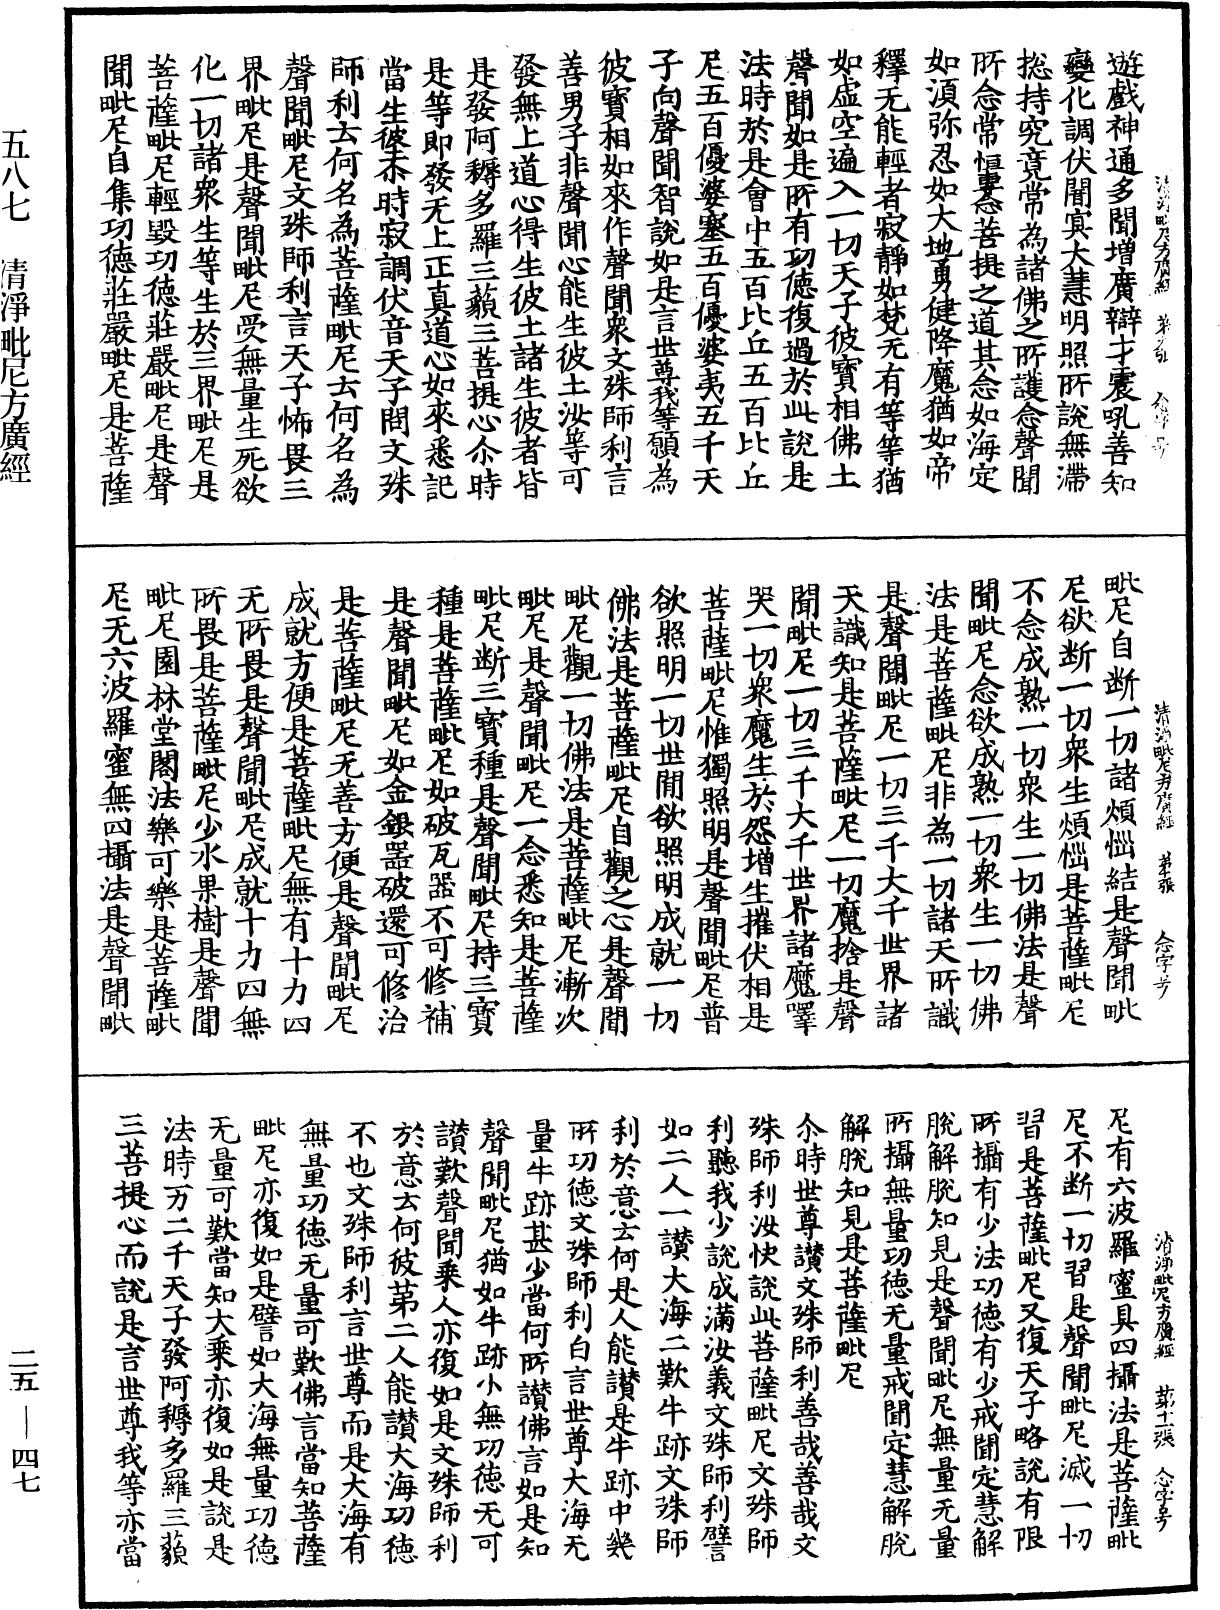 遊戲神通多聞增廣辯才震吼善知
變化調伏闇冥大慧明照所說無滯
捴持究竟常為諸佛之所護念聲聞
所念常懷專念菩提之道其念如海定
如湏弥忍如大地勇健降魔猶如帝
釋无能輕者寂靜如梵无有等等猶
如虛空遍入一切天子彼寶相佛土
聲聞如是所有功德復過於此說是
法時於是會中五百比丘五百比丘
尼五百優婆塞五百優婆夷五千天
子向聲聞智說如是言世尊我等願為
彼寶相如來作聲聞衆文殊師利言
善男子非聲聞心能生彼土汝等可
發無上道心得生彼土諸生彼者皆
是發阿耨多羅三藐三菩提心尒時
是等即發无上正真道心如來悉記
當生彼尒時寂調伏音天子問文殊
師利云何名為菩薩毗尼云何名為
聲聞毗尼文殊師利言天子怖畏三
界毗尼是聲聞毗尼受無量生死欲
化一切諸衆生等生於三界毗尼是
菩薩毗尼輕毀功德莊嚴毗尼是聲
聞毗尼自集功德莊嚴毗尼是菩薩
清淨毗尼方廣經 第張 念字号
毗尼自断一切諸煩惱結是聲聞毗
尼欲断一切衆生煩惱是菩薩毗尼
不念成熟一切衆生一切佛法是聲
聞毗尼念欲成熟一切衆生一切佛
法是菩薩毗尼非為一切諸天所識
是聲聞毗尼一切三千大千世界諸
天識知是菩薩毗尼一切魔捨是聲
聞毗尼一切三千大千世界諸魔嘷
哭一切衆魔生於怨增生摧伏相是
菩薩毗尼惟獨照明是聲聞毗尼普
欲照明一切世間欲照明成就一切
佛法是菩薩毗尼自觀之心是聲聞
毗尼觀一切佛法是菩薩毗尼漸次
毗尼是聲聞毗尼一念悉知是菩薩
毗尼断三寶種是聲聞毗尼持三寶
種是菩薩毗尼如破瓦器不可修補
是聲聞毗尼如金銀器破還可修治
是菩薩毗尼无善方便是聲聞毗尼
成就方便是菩薩毗尼無有十力四
无所畏是聲聞毗尼成就十力四無
所畏是菩薩毗尼少水果樹是聲聞
毗尼園林堂閣法樂可樂是菩薩毗
尼无六波羅蜜無四攝法是聲聞毗
清淨毗尼方廣經 第張 念字号
尼有六波羅蜜具四攝法是菩薩毗
尼不断一切習是聲聞毗尼滅一切
習是菩薩毗尼又復天子略說有限
所攝有少法功德有少戒聞定慧解
脫解脫知見是聲聞毗尼無量无量
所攝無量功德无量戒聞定慧解脫
解脫知見是菩薩毗尼
尒時世尊讃文殊師利善哉善哉文
殊師利汝快說此菩薩毗尼文殊師
利聽我少說成滿汝義文殊師利譬
如二人一讃大海二歎牛跡文殊師
利於意云何是人能讃是牛跡中幾
所功德文殊師利白言世尊大海无
量牛跡甚少當何所讃佛言如是知
聲聞毗尼猶如牛跡小無功德无可
讃歎聲聞乘人亦復如是文殊師利
於意云何彼第二人能讃大海功德
不也文殊師利言世尊而是大海有
無量功德无量可歎佛言當知菩薩
毗尼亦復如是譬如大海無量功德
无量可歎當知大乘亦復如是說是
法時万二千天子發阿耨多羅三藐
三菩提心而說是言世尊我等亦當
清淨毗尼方廣經 第十一張 念字号
五八七 清淨毗尼方廣經
二五—四七